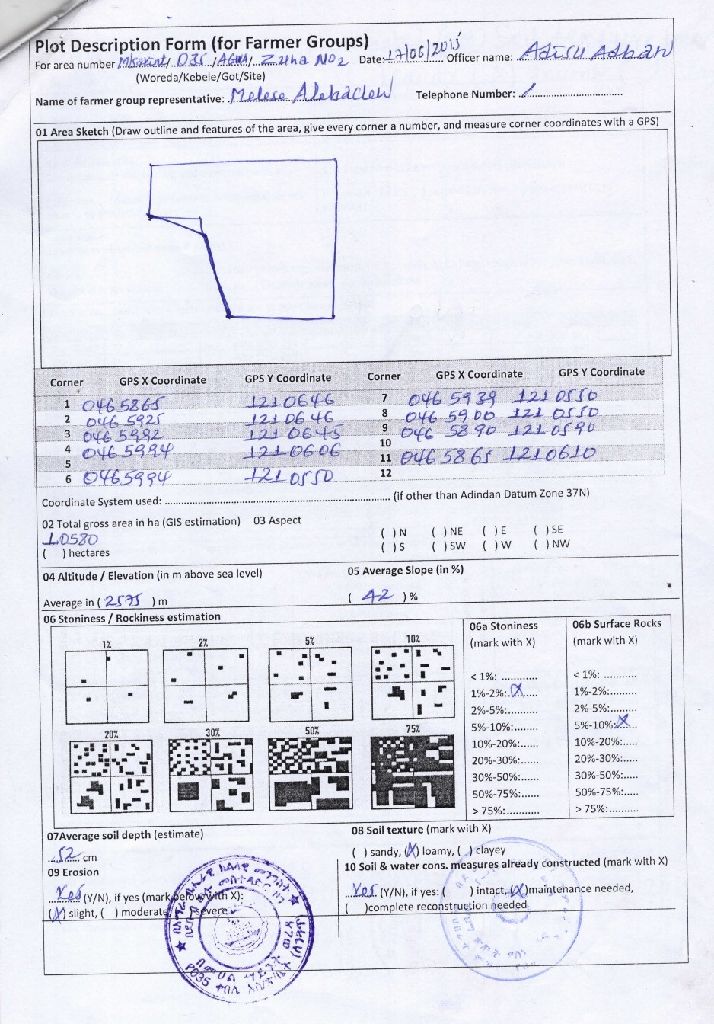 Plot Description Form (for Farmer Groups)
For area number D35 Zuha No2 Date: 17/06/2015 Officer name:
(Woreda/Kebele/Got/Site)
Name of farmer group representative: Melese Alebachew Telephone Number: /
01 Area Sketch (Draw outline and features of the area, give every corner a number, and measure corner coordinates with a GPS)
Corner GPS X Coordinate GPS Y Coordinate Corner GPS X Coordinate GPS Y Coordinate
1 0465865 1210646 7 0465939 1210550
2 0465925 1210646 8 0465900 1210550
3 0465992 1210645 9 0465890 1210590
4 0465994 1210606 10
5 11 0465865 1210610
6 0465994 1210550 12
Coordinate System used: (if other than Adindan Datum Zone 37N)
02 Total gross area in ha (GIS estimation) 03 Aspect
1.0580 ( ) N ( ) NE ( ) E ( ) SE
( ) hectares ( ) S ( ) SW ( ) W ( ) NW
04 Altitude / Elevation (in m above sea level) 05 Average Slope (in %)
Average in ( 2575 ) m ( 42 ) %
06 Stoniness / Rockiness estimation 06a Stoniness 06b Surface Rocks
(mark with X) (mark with X)
1% 2% 5% 10%
20% 30% 50% 75%
< 1%: < 1%:
1%-2%: X 1%-2%:
2%-5%: 2%-5%:
5%-10%: 5%-10%: X
10%-20%: 10%-20%:
20%-30%: 20%-30%:
30%-50%: 30%-50%:
50%-75%: 50%-75%:
> 75%: > 75%:
07Average soil depth (estimate) 08 Soil texture (mark with X)
52 cm ( ) sandy, (X) loamy, ( ) clayey
09 Erosion 10 Soil & water cons. measures already constructed (mark with X)
Yes (Y/N), if yes (mark below with X): Yes (Y/N), if yes: ( ) intact, (X) maintenance needed,
(X) slight, ( ) moderate, severe ( )complete reconstruction needed